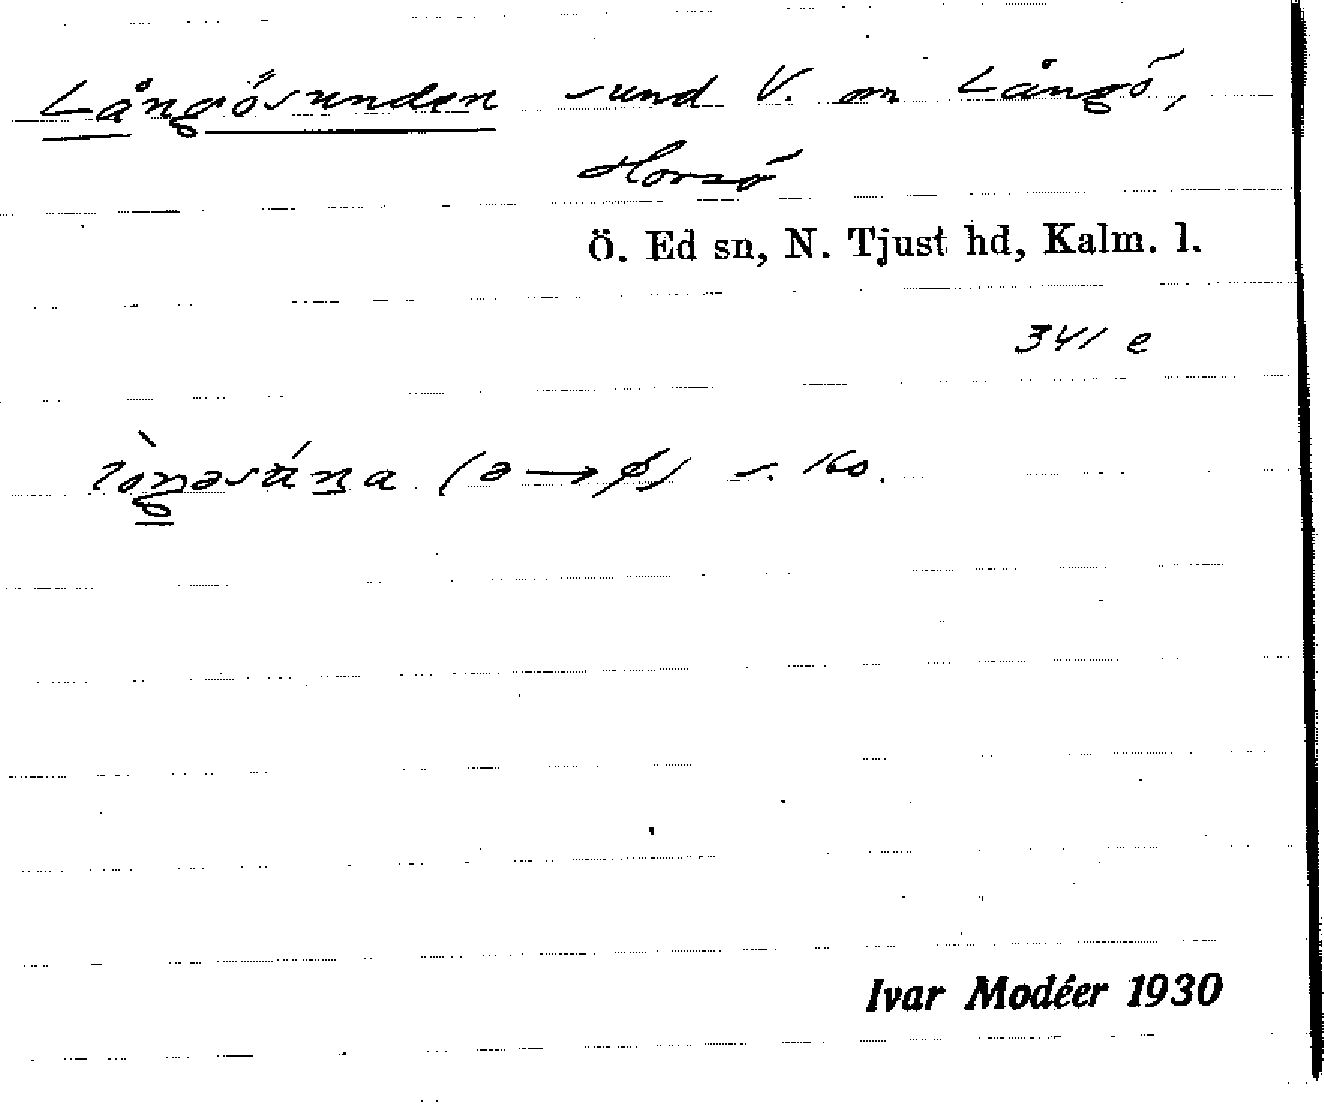 Långösunden sund V. om Långö,
Horsö
Ö. Ed sn, N. Tjust hd, Kalm. l.
341 e
(ə → ø)
Ivar Modéer 1930